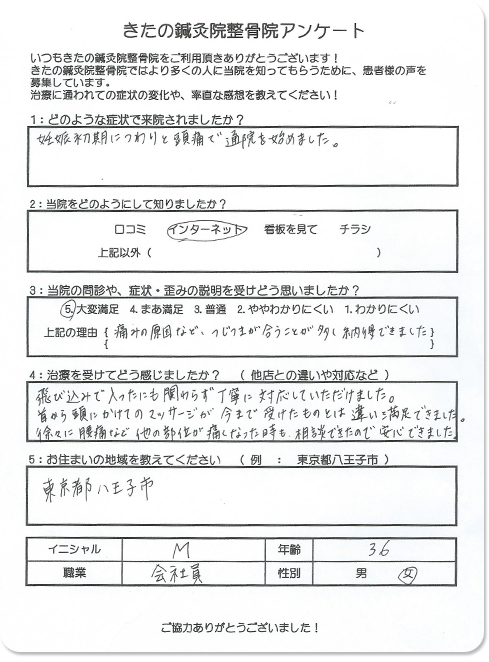 きたの鍼灸院整骨院アンケート
いつもきたの鍼灸院整骨院をご利用頂きありがとうございます！
きたの鍼灸院整骨院ではより多くの人に当院を知ってもらうために、患者様の声を
募集しています。
治療に通われての症状の変化や、率直な感想を教えてください！
1：どのような症状で来院されましたか？
妊娠初期につわりと頭痛で通院を始めました。
2：当院をどのようにして知りましたか？
口コミ インターネット 看板を見て チラシ
上記以外（ ）
3：当院の問診や、症状・歪みの説明を受けどう思いましたか？
5.大変満足 4.まあ満足 3.普通 2.ややわかりにくい 1.わかりにくい
上記の理由｛痛みの原因など、つじつまが合うことが多く納得できました｝
｛ ｝
4：治療を受けてどう感じましたか？ （他店との違いや対応など）
飛び込みで入ったにも関わらず丁寧に対応していただけました。
首から頭にかけてのマッサージが今まで受けたものとは違い満足できました。
徐々に腰痛など他の部位が痛くなった時も、相談できたので安心できました
5：お住まいの地域を教えてください （例 ： 東京都八王子市）
東京都八王子市
イニシャル M 年齢 36
職業 会社員 性別 男 女
ご協力ありがとうございました！